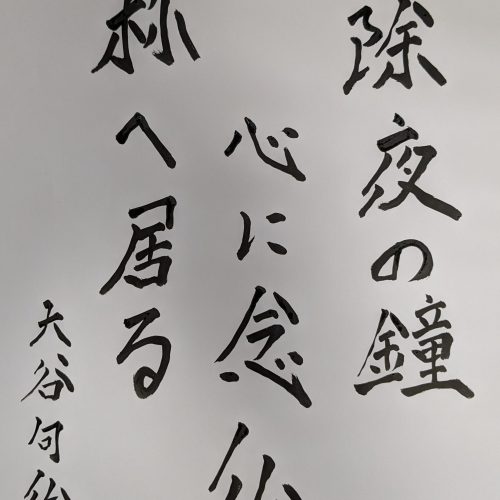 除夜の鐘
心に念
称へ居る
大谷句